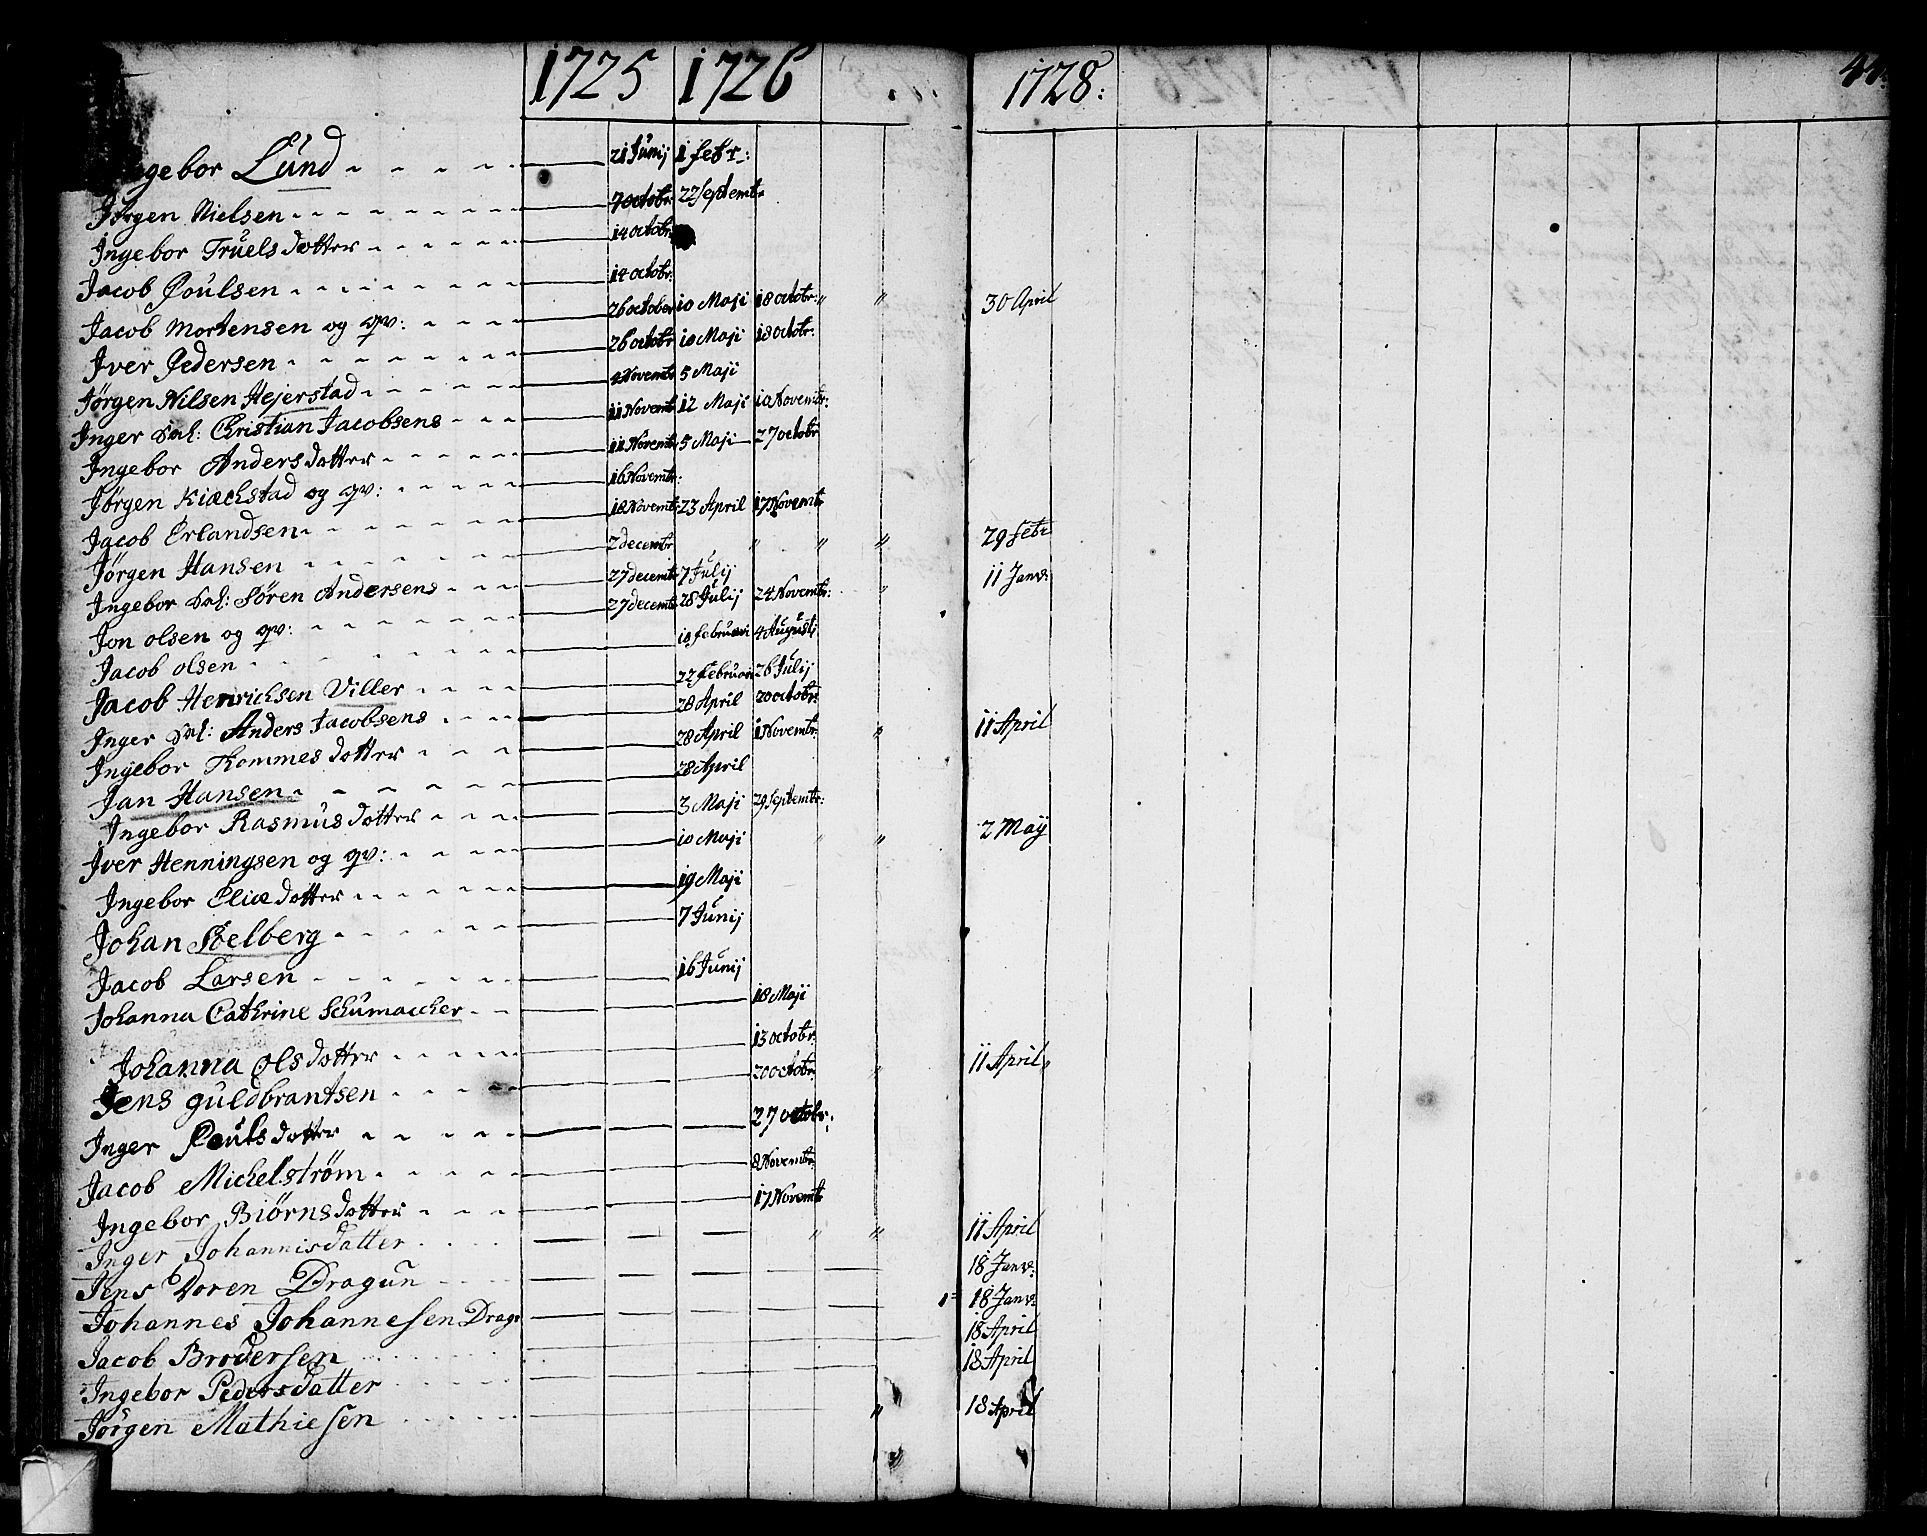 1725 1726 1728: 44.
Ingebor Lund 21 Junij 1 febr:
Jörgen Nielsen 7 octobr: 22 Septembr
Ingebor Truels dotter 14 octobr:
Jacob Poulsen 14 octobr:
Jacob Mortensen og qv: 26 october 10 Maji 18 octobr: " " 30 April
Jver Pedersen 26 octobr 10 Maji 18 octobr:
Jørgen Nilsen Hejerstad 4 Novembr 5 Maji
Inger Sal: Christian Jacobsens 11 Novembr 12 Maji 10 Novembr:
Ingebor Anders dotter 11 Novembr 5 Maji 27 octobr
Jörgen Kiæchstad og qv: 16 Novembr:
Jacob Erlandsen 18 Novembr: 23 April 17 Novembr
Jørgen Hansen 2 decembr " " " 29 febr
Ingebor Sal: Søren Andersens 27 decembr 7 Julij " 11 Janv:
Jon olsen og qv: 27 decembr 28 Julij 24 Novembr:
Jacob olsen 10 februari 4 Augustj
Jacob Henrichsen Viller 22 februari 26 Julij
Inger Sal: Anders Jacobsens 28 April 20 octobr:
Ingebor Thommes dotter 28 April 1 Novembr: " 11 April
Jan Hansen 28 April
Ingebor Rasmus dotter 3 Maji 29 Septembr:
Jver Henningsen og qv: 10 Maji " " 2 Maÿ
Ingebor Eliæ dotter 19 Maji
Johan Stelberg 7 Junij
Jacob Larsen 16 Junij
Johanna Cathrine Schumaccher 18 Maji
Johanna ols dotter 13 octobr:
Jens guldbrantsen 20 octobr: " 11 April
Inger Pouls dotter 27 octobr:
Jacob Michelström 8 Novembr:
Ingebor Biörns dotter 17 Novembr
Inger Johannisdatter " " 11 April
Jens Doren Dragun 18 Janv:
Johannes Johannesen Drag: 18 Janv:
Jacob Brodersen 18 April
Ingebor Pedersdatter 18 April
Jörgen Mathiesen " 18 April